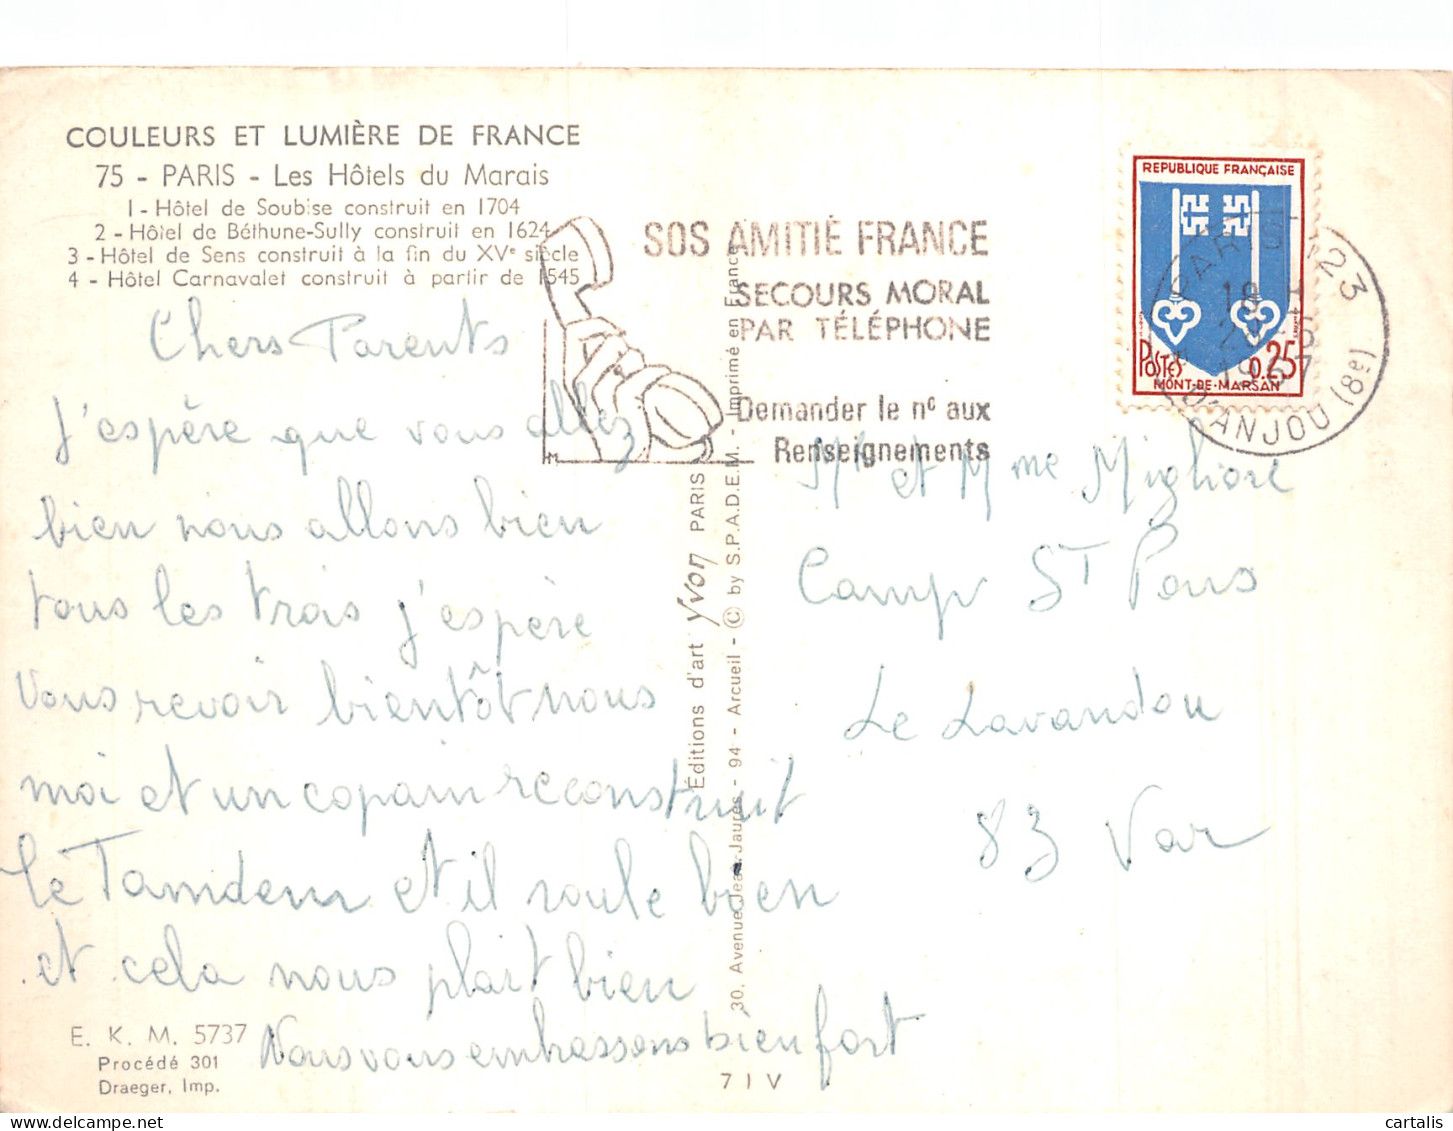 COULEURS ET LUMIÈRE DE FRANCE
75 - PARIS - Les Hôtels du Marais
1 - Hôtel de Soubise construit en 1704
2 - Hôtel de Béthune-Sully construit en 1624
3 - Hôtel de Sens construit à la fin du XVe siècle
4 - Hôtel Carnavalet construit à partir de 1545
Chers Parents
J'espère que vous allez
bien nous allons bien
tous les trois j'espère
vous revoir bientôt nous
moi et un copain reconstruit
le Tamdem et il roule bien
et cela nous plait bien
Nous vous embrassons bien fort
E. K. M. 5737
Procédé 301
Draeger, Imp.
Éditions d'art Yvon PARIS
30, Avenue Jean-Jaurès - 94 - Arcueil - © by S.P.A.D.E.M. - Imprimé en France
7 I V
SOS AMITIÉ FRANCE
SECOURS MORAL
PAR TÉLÉPHONE
Demander le n° aux
Renseignements
REPUBLIQUE FRANÇAISE
POSTES 0,25
MONT-DE-MARSAN
PARIS 123
18 H
1967
D'ANJOU (8e)
Mr et Mme Migliore
Camp St Pons
Le Lavandou
83 Var
cartalis